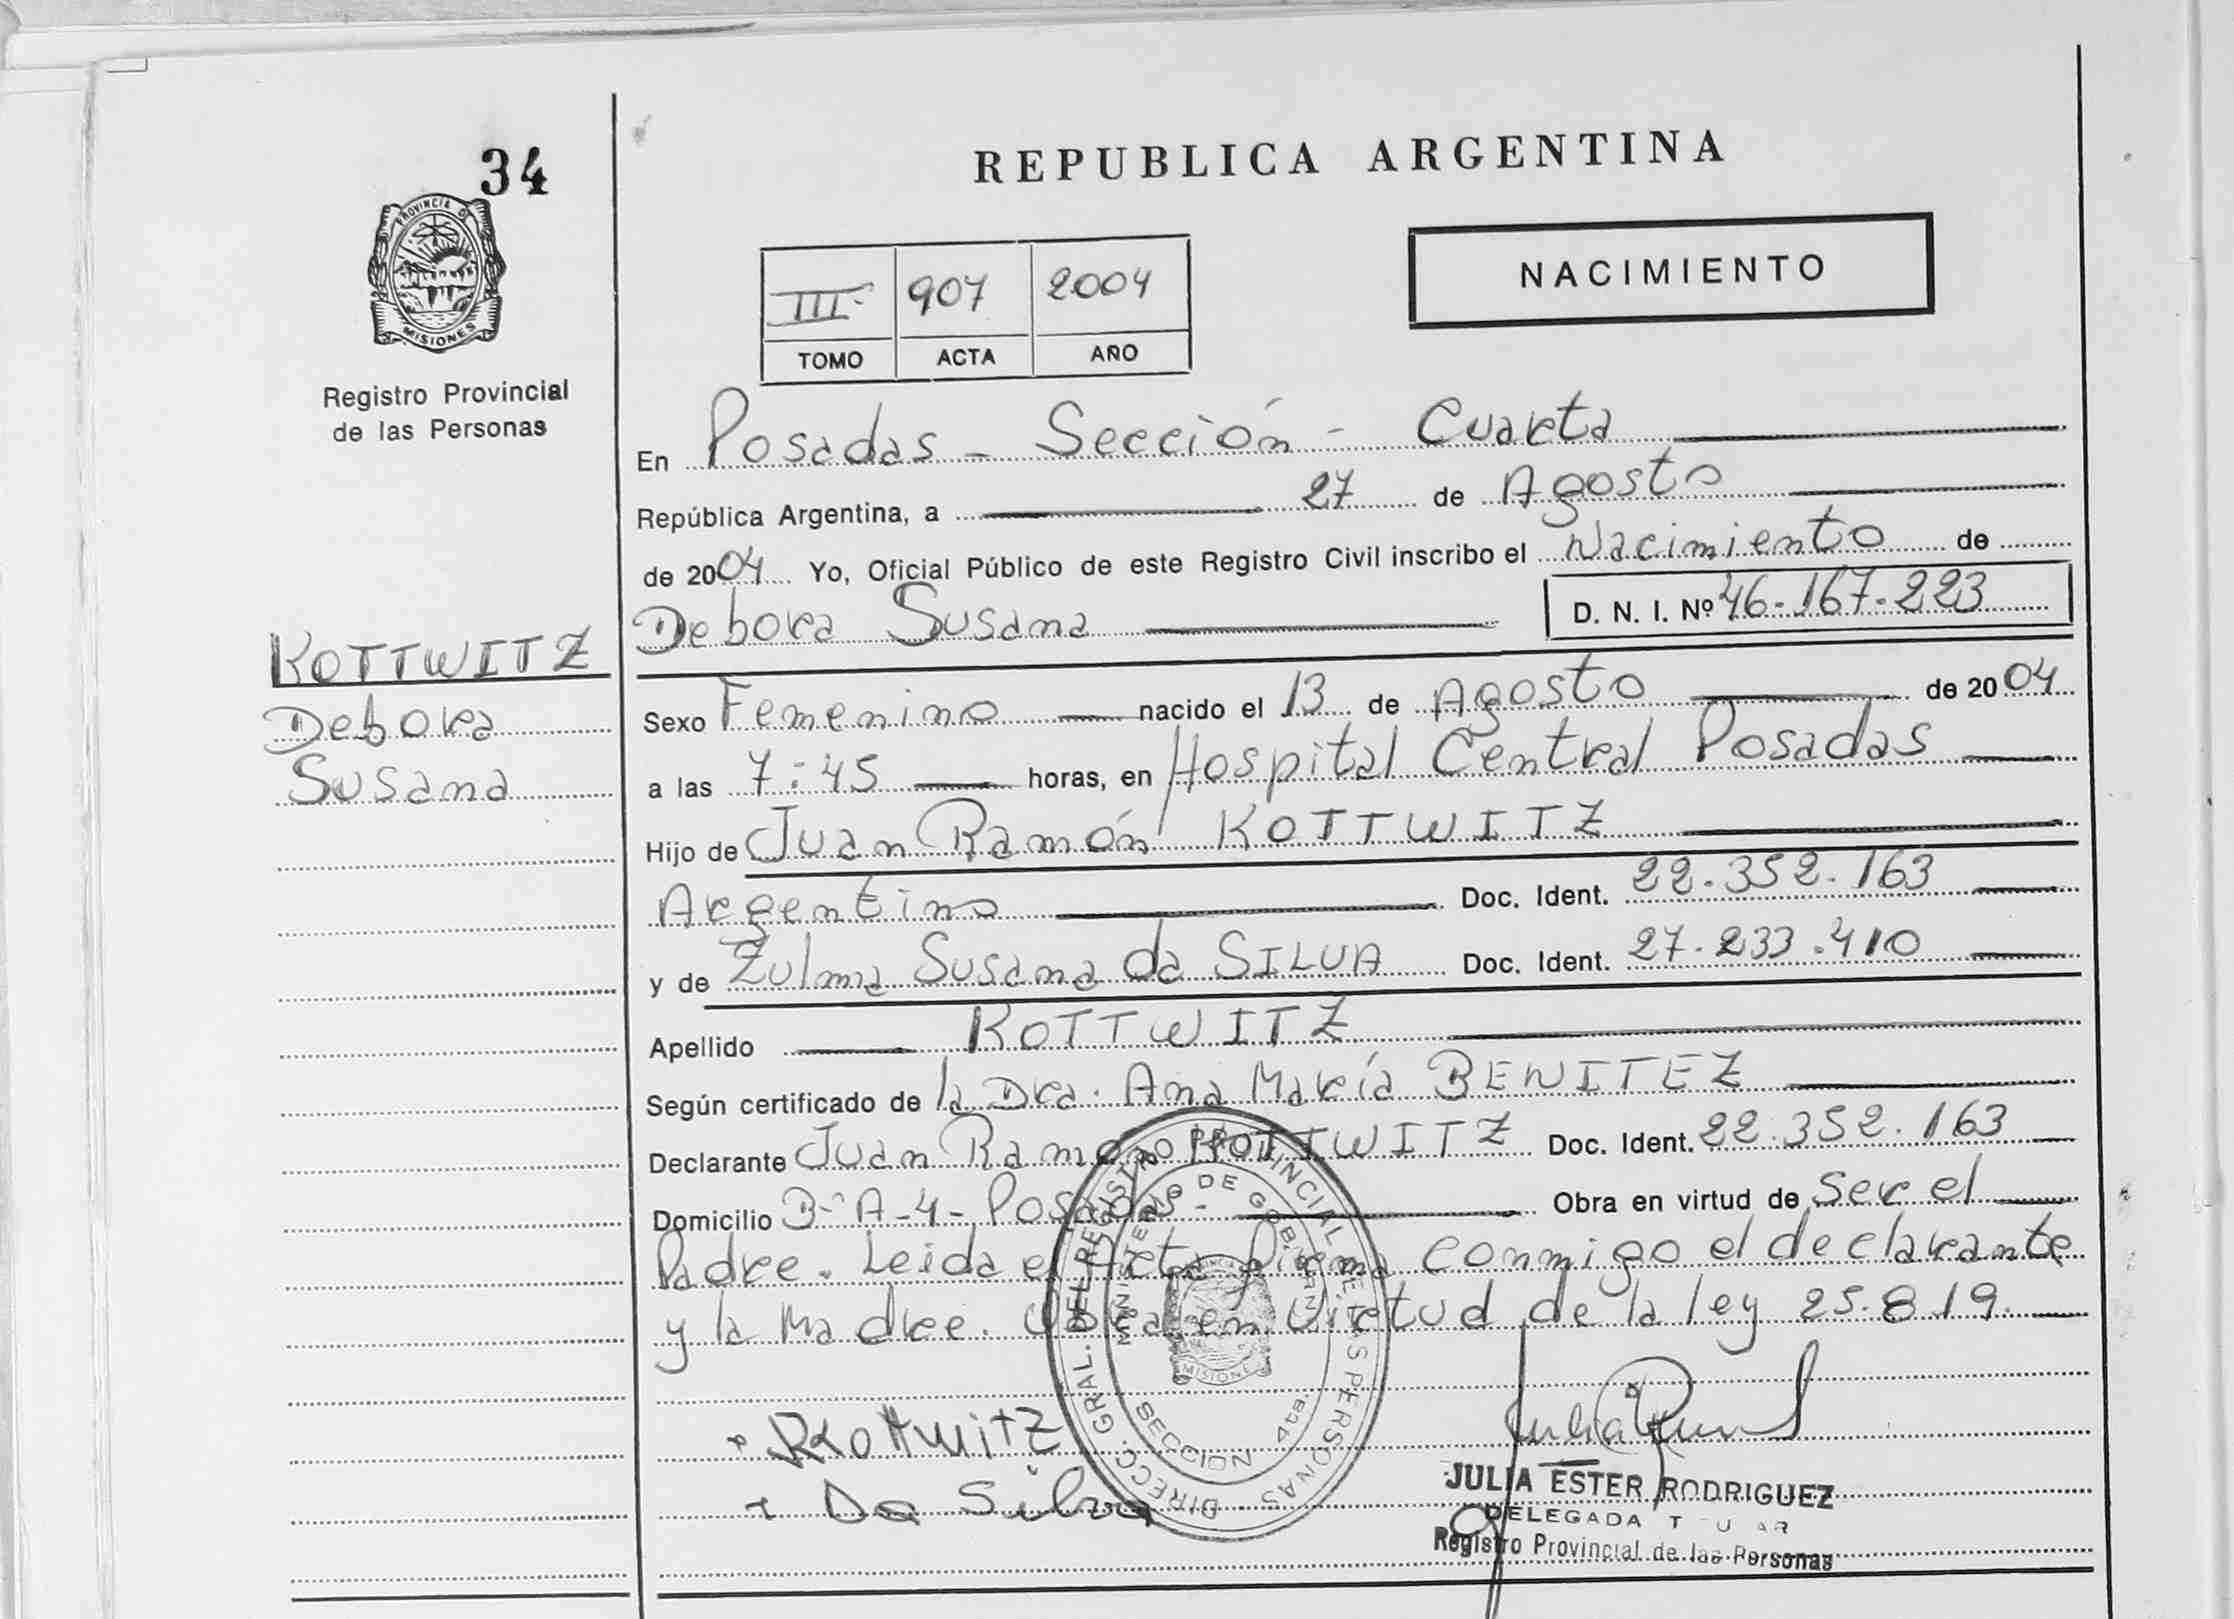 34
PROVINCIA DE
MISIONES
Registro Provincial
de las Personas
KOTTWITZ
Debora
Susana
REPUBLICA ARGENTINA
III 907 2004
TOMO ACTA AÑO
NACIMIENTO
En Posadas - Sección - Cuarta
República Argentina, a 27 de Agosto
de 2004 Yo, Oficial Público de este Registro Civil inscribo el Nacimiento de
Debora Susana D. N. I. Nº 46.167.223
Sexo Femenino nacido el 13 de Agosto de 2004
a las 7:45 horas, en Hospital Central Posadas
Hijo de Juan Ramón KOTTWITZ
Argentino Doc. Ident. 22.352.163
y de Zulma Susana da SILVA Doc. Ident. 27.233.410
Apellido KOTTWITZ
Según certificado de la Dra. Ana María BENITEZ
Declarante Juan Ramón KOTTWITZ Doc. Ident. 22.352.163
Domicilio B-A-4- Posadas- Obra en virtud de Ser el
Padre. Leida el Acta firma conmigo el declarante
y la Madre. Obra en virtud de la ley 25.819.
DIRECC. GRAL. DEL REGISTRO PROVINCIAL DE LAS PERSONAS
MINISTERIO DE GOBIERNO
SECCION 4ta.
MISIONES
Kottwitz
Da Silva
JULIA ESTER RODRIGUEZ
DELEGADA
Registro Provincial de las Personas